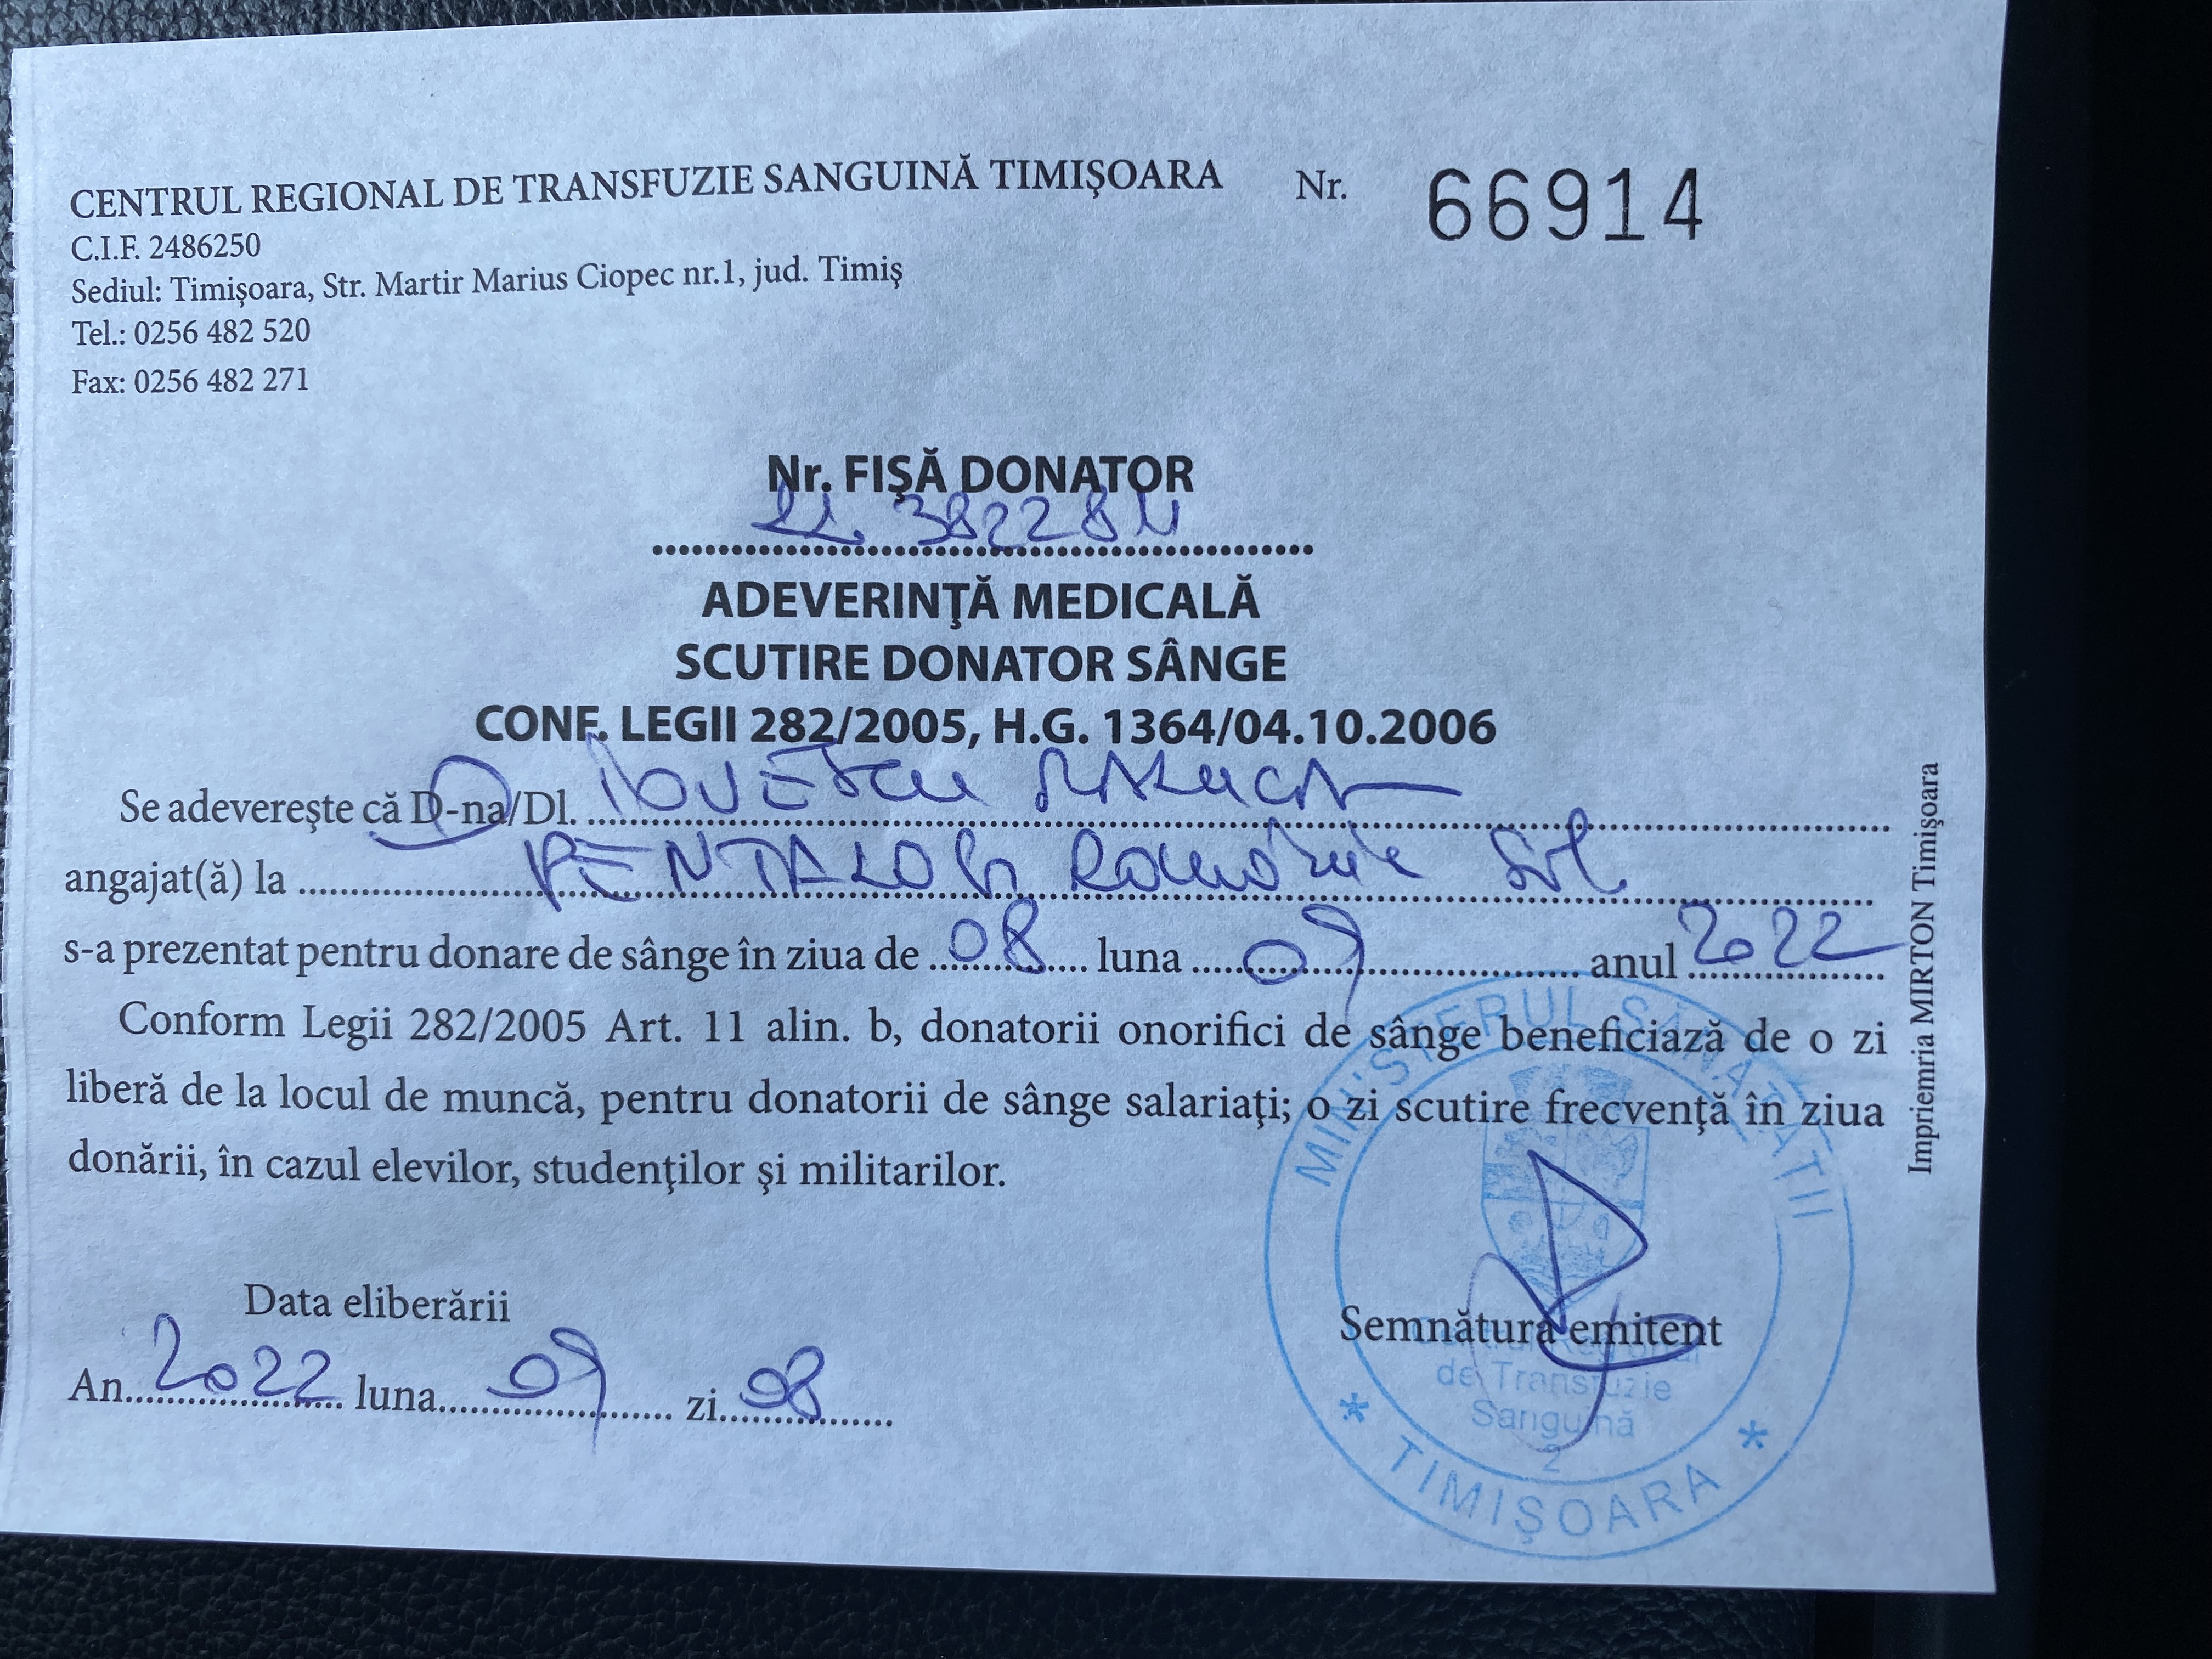 CENTRUL REGIONAL DE TRANSFUZIE SANGUINĂ TIMIȘOARA Nr. 66914
C.I.F. 2486250
Sediul: Timișoara, Str. Martir Marius Ciopec nr.1, jud. Timiș
Tel.: 0256 482 520
Fax: 0256 482 271
Nr. FIȘĂ DONATOR
ADEVERINȚĂ MEDICALĂ
SCUTIRE DONATOR SÂNGE
CONF. LEGII 282/2005, H.G. 1364/04.10.2006
Se adeverește că D-na/Dl.
angajat(ă) la PENTALOG Srl
s-a prezentat pentru donare de sânge în ziua de 08 luna 09 anul 2022
Conform Legii 282/2005 Art. 11 alin. b, donatorii onorifici de sânge beneficiază de o zi
liberă de la locul de muncă, pentru donatorii de sânge salariați; o zi scutire frecvență în ziua
donării, în cazul elevilor, studenților și militarilor.
Data eliberării
An 2022 luna 09 zi 08
Semnătura emitent
MINISTERUL SĂNĂTĂȚII
de Transfuzie
Sanguină
2
* TIMIȘOARA *
Impriemria MIRTON Timișoara